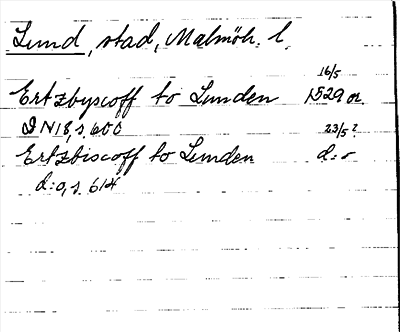 Lund, stad, Malmöh. l.
16/5
Ertzbyscoff to Lunden 1529 or.
D N 18, s. 600
23/5?
Ertzbiscoff to Lunden d:o
d:o, s. 614